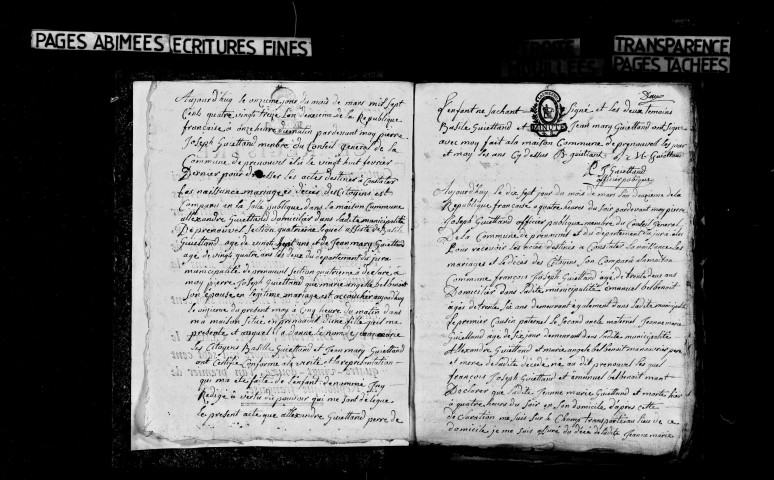 PAGES ABIMEES ECRITURES FINES
TRANSPARENCE
PAGES TACHEES
Aujourd'huy le onzieme jour du mois de mars mil sept
Cent quatre vingt treize l'an deuxieme de la Republique
françoise a onze heures du matin pardevant moy pierre
Joseph Guiettand membre du Conseil general de la
Commune de prenouvel elu le vingt huit fevrier
Dernier pour dresser les actes destinés a Constater
Les naissances mariages et décès des Citoyens est
Comparu en la sale publique dans la maison Commune
alexandre Guiettand domicilié dans ladite municipalité
De prenouvel section quatrieme lequel assisté de Basile
Guiettand agé de vingt sept ans et de Jean mary Guiettand
agé de vingt quatre ans les deux du departement du jura
municipalité de prenouvel section quatrieme a declaré a
moy pierre Joseph Guiettand que marie angele belbenoit
son epouse en legitime mariage est accouchée aujourd'huy
le onzieme du present moy a Cinq heures du matin dans
sa maison située en prenouvel d'une fille qu'il me
presente et auquel il a donné le nom de jeanne marie
Les Citoyens Basille Guiettand et Jean mary Guiettand
ont Certifié Conforme a la verité et la representation
qui m'a été faite de l'enfant denommé J'ay
Redigé a vertu du pouvoir qui me sont delegué
le present acte que alexandre Guiettand perre de
Deux
L'enfant ne sachant signé et les deux temoins
Basile Guiettand et Jean mary Guiettand ont signé
avec moy fait a la maison Commune de prenouvel les jour
et moy les ans Cy dessus B guiettand J M Guiettand
P J Guiettand
officier publique
Aujourd'huy le dix sept jour du mois de mars l'an deuxieme de la
Republique françoise a quatre heures du soir pardevant moy pierre
Joseph Guiettand officier publique membre du Conseil General
De la Commune de prenouvel et du departement du jura elu
Pour recevoir les actes destinés a Constater les naissances les
mariages et le décès des Citoyens sont Comparu a la maison
Commune françois Joseph Guiettand agé de trente deux ans
Domicilié dans ladite municipalité emanuel belbenoit
agé de trente six ans demeurant egalement dans ladite municipalité
le premier Cousin paternel le second oncle maternel Jeanne marie
Guiettand agé de six jour demeurant dans ladite municipalité
alexandre Guiettand et marie angele belbenoit manouvriers pere
et mere de ladite decedée, au dit prenouvel les quel
françois Joseph Guiettand et emanuel belbenoit m'ont
Declarer que ladite Jeanne marie Guiettand et morte hier
a quatre heures du soir en son domicile d'apres cette
declaration me suis sur le Champ transporté au lieu de ce
domicile je me suis assuré du décé de ladite Jeanne marie